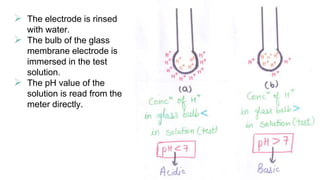 ➢ The electrode is rinsed
with water.
➢ The bulb of the glass
membrane electrode is
immersed in the test
solution.
➢ The pH value of the
solution is read from the
meter directly.
(a)
Concⁿ of H⁺
in glass bulb <
in solution (test)
pH < 7
Acidic
(b)
Concⁿ of H⁺
in glass bulb >
in solution (test)
pH > 7
Basic